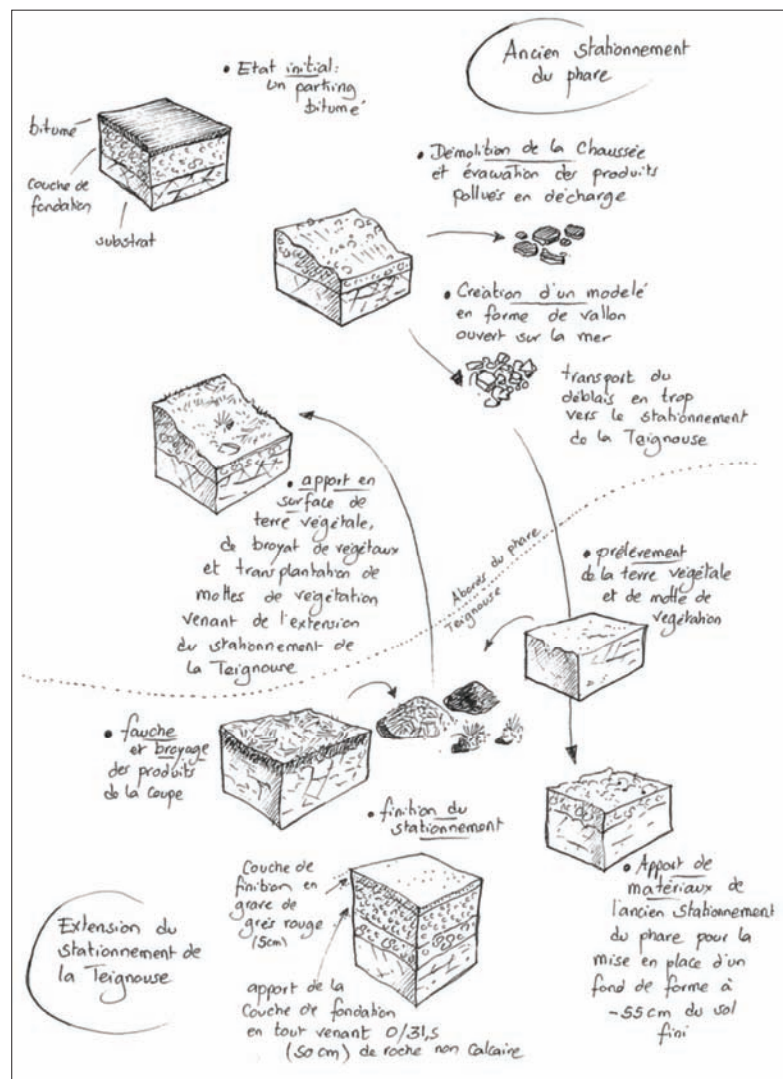 Ancien stationnement
du phare
• Etat initial:
un parking
bitumé
bitume
couche de
fondation
substrat
• Démolition de la Chaussée
et évacuation des produits
pollués en décharge
• Création d'un modelé
en forme de vallon
ouvert sur la mer
transport du
déblais en trop
vers le stationnement
de la Teignouse
• apport en
surface de
terre végétale,
de broyat de végétaux
et transplantation de
mottes de végétation
venant de l'extension
du stationnement de
la Teignouse
Abords du phare
Teignouse
• prélèvement
de la terre végétale
et de motte de
végétation
• fauche
et broyage
des produits
de la coupe
• finition du
stationnement
Couche de
finition en
grave de
grès rouge
(5cm)
apport de la
Couche de fondation
en tout venant 0/31,5
(50 cm) de roche non calcaire
• Apport de
matériaux de
l'ancien stationnement
du phare pour la
mise en place d'un
fond de forme à
-55 cm du sol
fini
Extension du
stationnement de
la Teignouse